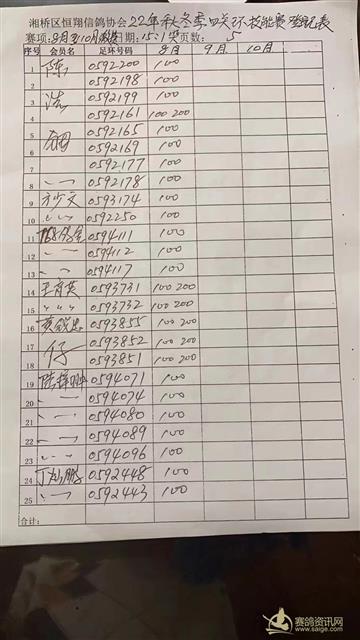 湘桥区恒翔信鸽协会22年秋冬季四关环技能赛登记表
赛项:8月至10月 日期:15:1奖 页数:5
序号 会员名 足环号码 8月 9月 10月
1 陈 0592200 100
2 0592198 100
3 浩 0592199 100
4 0592161 100 200
5 0592165 100
6 0592169 100
7 0592177 100
8 0592178 100
9 方少文 0593174 100
10 0592250 100
11 0594111 100
12 0594112 100
13 0594117 100
14 王育英 0593731 100 200
15 0593732 100 200
16 0593855 100 200
17 仔 0593852 100 200
18 0593851 100 200
19 0594071 100
20 0594074 100
21 0594080 100
22 0594089 100
23 0594096 100
24 丁灿鹏 0592448 100
25 0592443 100
合计:
赛鸽资讯网
www.saige.com